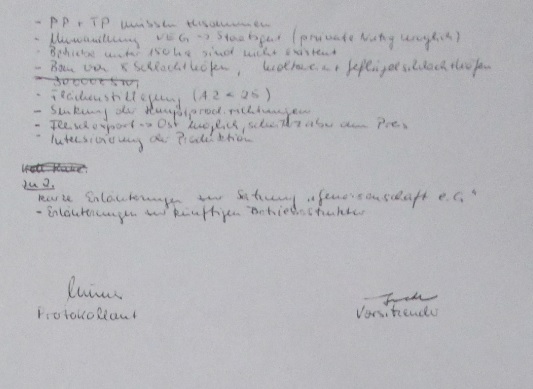 - PP + TP müssen zusammen
- Umwandlung VEG → Staatsgut (private Nutzg möglich)
- Betriebe unter 150 ha sind nicht existent
- Bau von 8 Schlachthöfen, Geflügelschlachthöfen
- Flächenstillegung (AZ < 25)
- Senkung der Hauptprod.richtungen
- Fleischexport → Ost möglich, aber am Preis
- Intensivierung der Produktion
zu 2.
kurze Erläuterungen zur Satzung „Genossenschaft e.G."
- Erläuterungen zur künftigen Betriebsstruktur
Protokollant
Vorsitzender